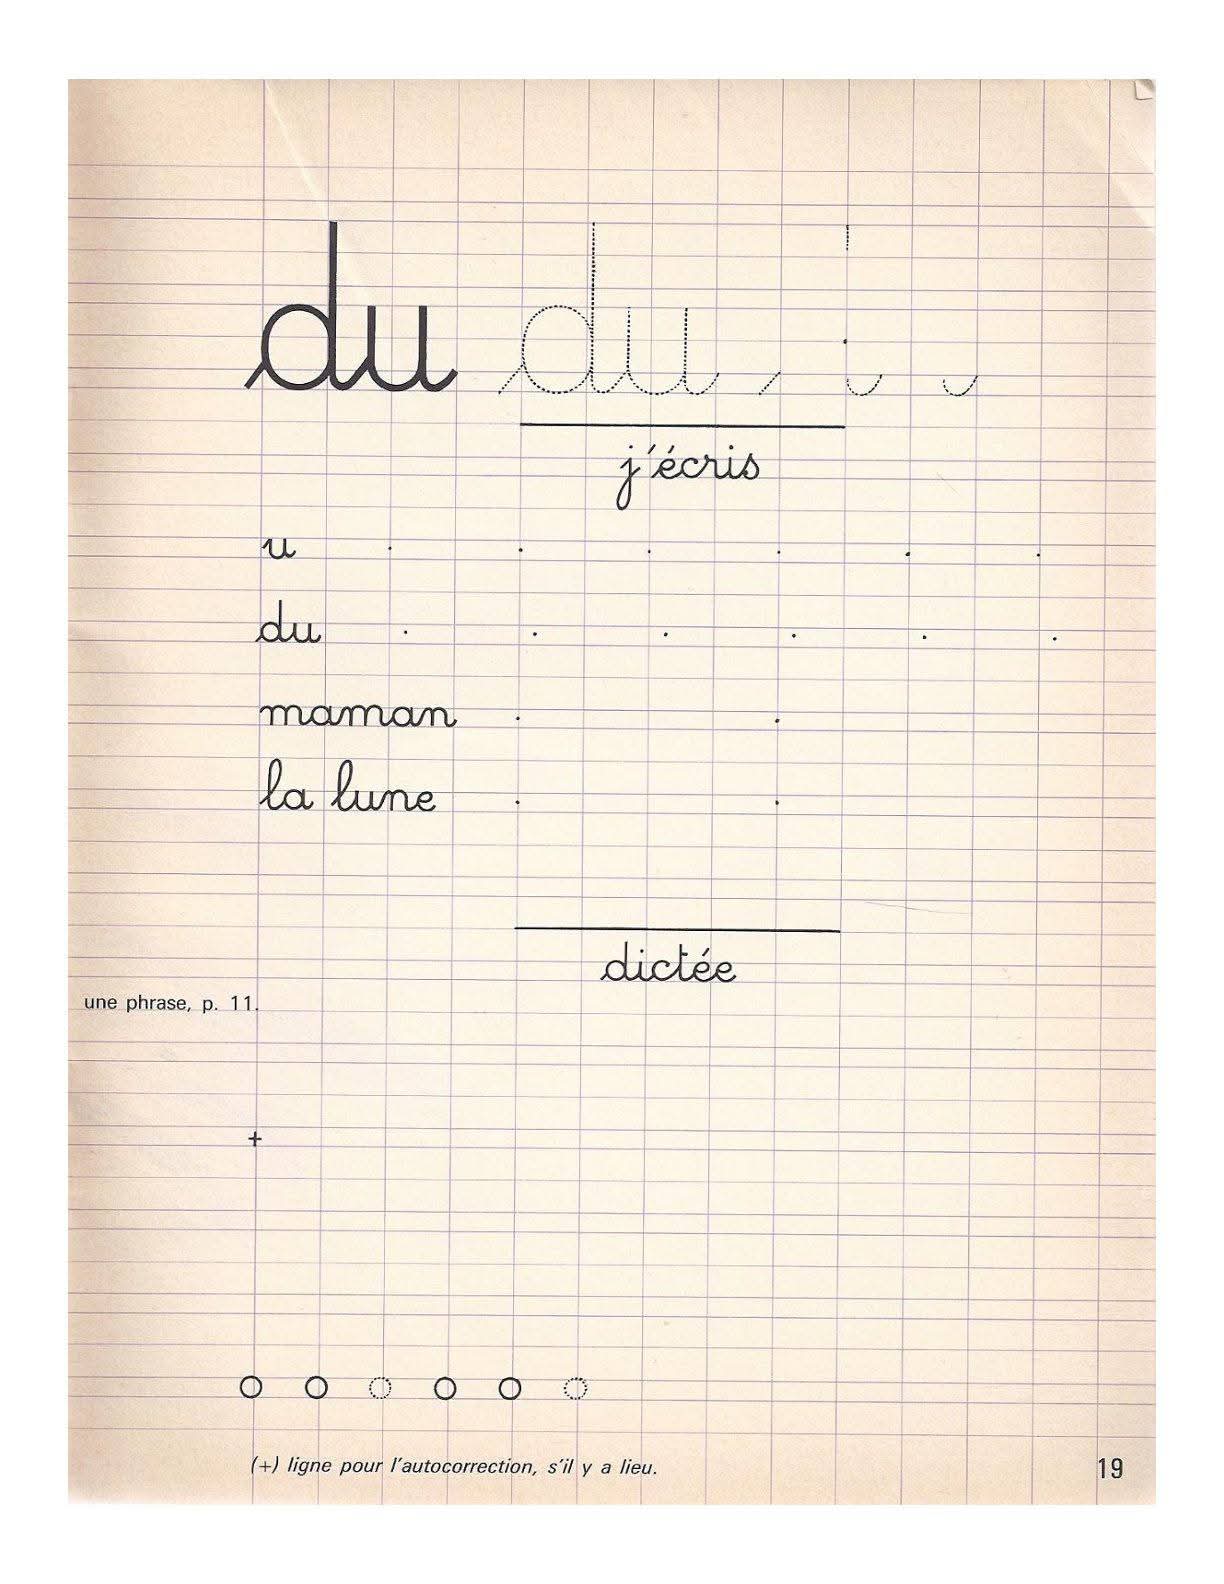 du du
j'écris
u
du
maman
la lune
dictée
une phrase, p. 11.
+
(+) ligne pour l'autocorrection, s'il y a lieu.
19